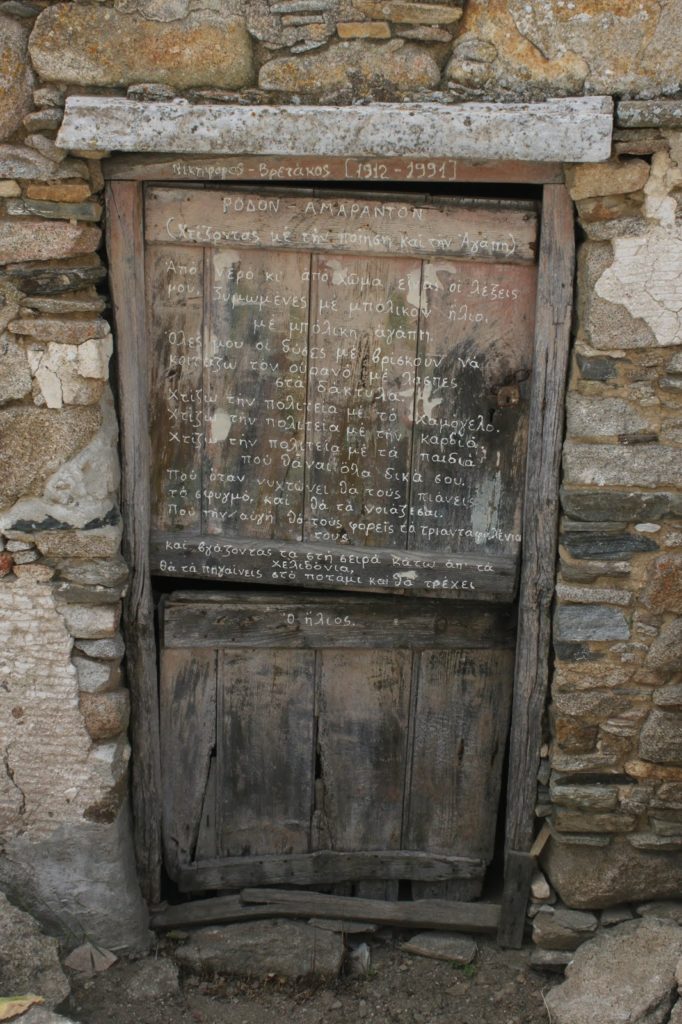 Νικηφόρος - Βρετάκος [1912 - 1991]
ΡΌΔΟΝ - ΑΜΆΡΑΝΤΟΝ
(Χτίζοντας μέ τήν ποίηση καί την Ἀγάπη)
Ἀπό νερό κι' ἀπό χῶμα εἶναι οἱ λέξεις
μου. ζυμωμένες μέ μπόλικον ἥλιο.
μέ μπόλικη ἀγάπη.
Ὅλες μου οἱ δύσες μέ βρίσκουν νά
κοιτάζω τόν οὐρανό μέ λάσπες
στά δάκτυλα.
Χτίζω τήν πολιτεία μέ τό χαμόγελο.
Χτίζω τήν πολιτεία μέ τήν καρδιά
Χτίζω τήν πολιτεία μέ τά παιδιά
πού θἆναι ὅλα δικά σου.
Πού ὅταν νυχτώνει θα τούς πιάνεις
τό σφυγμό, καί θά τά νοιάζεσαι.
Πού τήν αὐγή θά τούς φορεῖς τά τριανταφυλένια
τους
και βγάζοντας τα στή σειρά κάτω ἀπ' τά
χελιδόνια
θά τά πηγαίνεις στό ποτάμι καί θά τρέχει
Ὁ ἥλιος.